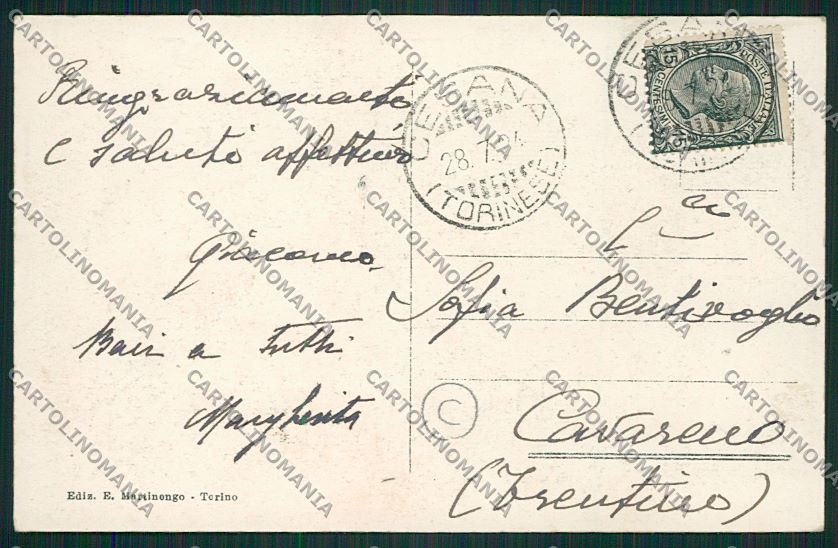 Ringraziamenti
e saluti affettuosi
Giacomo
Baci a tutti
Margherita
Ediz. E. Martinengo - Torino
CESANA
28.7.24
(TORINESE)
POSTE ITALIANE
15 CENTESIMI 15
Sofia Bentivoglio
Cavareno
(Trentino)
C
CARTOLINOMANIA